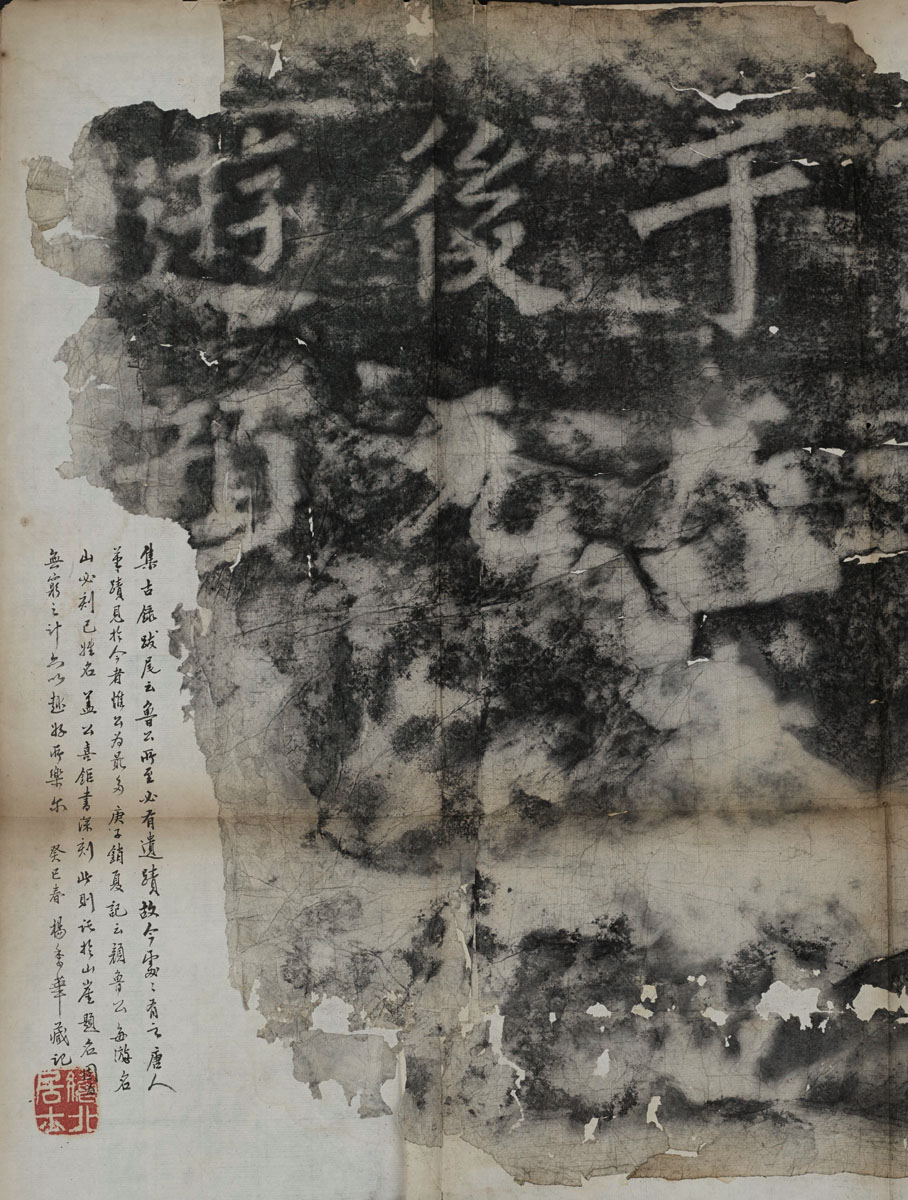 于
後
游
集古錄跋尾云魯公所至必有遺蹟故今處〻有之唐人
筆蹟見於今者惟公為最多庚子銷夏記云顏魯公每游名
山必刻己姓名蓋公喜鉅書深刻此則託於山崖題名固
無窮之計亦以趣好所樂尔 癸巳春 楊華藏記
北
居